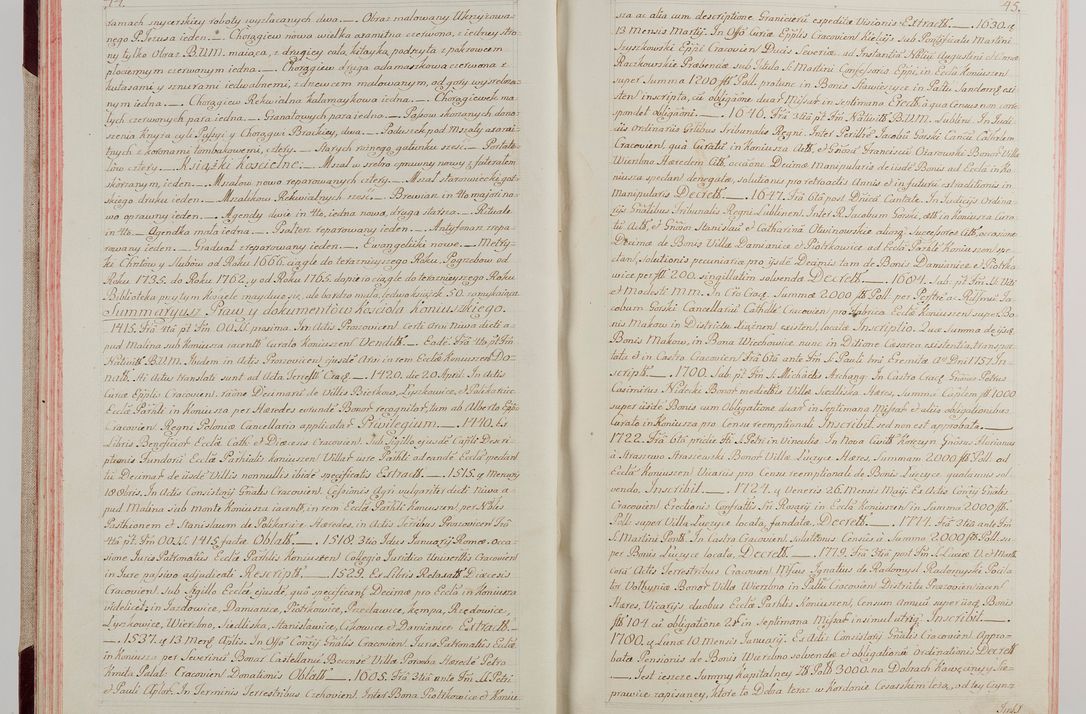 44.
ramach snycerskiey roboty wyzłacanych dwa. — Obraz malowany Ukrzyżowa=
nego P. Jezusa ieden. — Chorągiew nowa wielka axamitna czerwona, z iedney stro=
ny tylko Obraz B.V.M. maiąca, z drugiey cała kitayką podszyta z pokrowcem
płociennym czerwonym iedna. — Chorągiew druga adamaszkowa czerwona z
kutasami y sznurami iedwabnemi, z drzewcem malowanym, od góry wysrebrza=
nym iedna. — Chorągiew Rekwialna kałamaykowa iedna. — Chorągiewek ma=
łych czerwonych para iedna. — Granatowych para iedna. — Pasów skorzanych do no=
szenia Krzyża czyli Passyi y Chorągwi Brackiey, dwa. — Poduszek pod Mszały axami=
tnych z koronami tombakowemi, cztery. — Starych różnego gatunku sześć. — Portate=
lów cztery. — Książki kościelne. — Mszał w srebro oprawny nowy z futerałem
skórzanym, ieden. — Mszałów nowo reparowanych cztery. — Mszał staroswiecki got=
skiego druku ieden. — Mszalików Rekwialnych sześć. — Brewiarz in 4to majori no=
wo oprawny ieden. — Agendy dwie in 4to, iedna nowa, druga starsza. — Rituale
in 4to. — Agendka mała iedna. — Psałterz reparowany ieden. — Antyfonarz repa=
rowany ieden. — Graduał reparowany ieden. — Ewangeliczki nowe. — Metry=
ki Chrztów y Slubów od Roku 1666. ciągle do teraznieyszego Roku. Pogrzebow od
Roku 1735. do Roku 1762. y od Roku 1765. dopiero ciągle do teraznieyszego Roku.
Biblioteka przy tym Kościele znayduie się, ale bardzo mała, ledwo książek 50. zamykaiąca.
Summaryusz Praw y dokumentów kościoła Koniuszskiego.
1415. Fria 4ta pt Fm. OO.SS. proxima. In Actis Proszovicen. Certi Agri Niwa dicti a=
pud Malina sub Koniusza iacentis Curato Koniuszen. Venditt. — Eodem Fria 4ta pt Fm
Nativitt B.V.M. Iudem in Actis Proszovicen. ejusdem Agri in rem Eccl Koniuszen. Do=
natt. Hi Actus translati sunt ad Acta Terrest Crac. — 1420. die 20. April. In Actis
Curiae Epplis Cracovien. Decimarum de Villis Biorkow, Lyszkowice, et Polikarcice
Eccl Parlti in Koniusza per Haeredes eorundem Bonor recognitar, tum ab Alberto Eppo
Cracovien. Regni Poloniae Cancellario applicatar. Privilegium. — 1440. Ex
Libris Beneficior Eccl Cath et Dioecesis Cracovien. Sub Sigillo ejusdem Capli Descri=
ptionis Fundorum Eccl Parhialis Koniuszen. Villar iure Parhlt. ad eandem Eccl pertinen=
tium Decimar de iisdem Villis nonnullis ibidem specificatis Extractt. — 1515. y Mercurij
10. Obris. In Actis Consistorij Gnalis Cracovien. Cessionis Agri vulgariter dicti Niwa a=
pud Malina sub monte Koniusza iacentis, in rem Eccl Parlti Koniuszen. per Nobiles
Pasthionem et Stanislaum de Polikarcice Haeredes, in Actis Terribus Proszovicen. Fria
4ta pt. Fm OO.SS. 1415. factae Oblatt. — 1518. 3tio Idus Januarij Romae. Occa=
sione Juris Patronatus Eccl Parhlis Koniuszen. Collegio Juridico Universitatis Cracovien.
in Iure passivo adjudicati Rescriptt. — 1529. Ex Libris Retaxatt. Dioecesis
Cracovien. Sub Sigillo Eccl ejusdem, quae specificant. Decimae pro Eccl in Koniusza
videlicet: in Jazdowice, Damianice, Piotrkowice, Przesławice, Kempa, Rzędowice,
Lyszkowice, Wierzbno, Siedliska, Stanisławice, Cikowice et Damianice Extractt. —
— 1537. y 13 Mens Aplis. In Offo Conrij Gnalis Cracovien. Juris Patronatus Eccl
in Koniusza per Severinum Bonar Castellanum Biecensem Villae Porowba Haeredem Petro
Kmita Palat. Cracovien. Donationis Oblatt. — 1605. Fria 3tia ante Fm S. Petri
et Pauli Aplor. In Terminis Terrestribus Czchovien. Inter Bona Piotrkowice et Koniu=
45.
sza ac alia cum descriptione Granicierum expeditae Visionis Extractt. — 1630. y
13 mensis Martij. In Offo Curiae Epplis Cracovien. Kielcijs sub Pontificatu Martini
Szyszkowski Eppi Cracovien. Ducis Severiae, ad Instantiam Nobilium Augustini et Emae
Raczkowskie Praebendae sub Titulo S. Martini Confessoris Eppi, in Eccl Koniuszen.
super Summa 1200 flt. Poll. pro tunc in Bonis Sławieszyce in Paltu Sandomi. exi=
sten. inscripta, cum obligaone duar Missar in septimana Erectt. a qua Census non corre
spondet obligaoni. — 1646. Fria 3tia pt Fm Nativitt B.V.M. Lublini. In Judi=
ciis ordinariis Gnlibus Tribunalis Regni. Inter Perillrem Jacobum Górski Cancel. Cathdlem
Cracovien. qua Curatum in Koniusza Actt. et Gnosum Franciscum Ożarowski Bonor Villae
Wierzbno Haeredem Citt. occaone Decimae Manipularis de iisdem Bonis ad Eccl in Ko=
niusza spectan. denegatae, solutionis pro retroactis Annis et in futurum extraditionis in
Manipularis Decrett. — 1647. Fria 6ta post Dnicam Cantate. In Judicijs Ordina=
rijs Gnalibus Tribunalis Regni Lublinen. Inter R. Jacobum Górski, actt. in Koniusza Cura=
tum Actt, et Gnosos Stanislaum et Catharinam Otwinowskie aliosq Successores Citt. occasione
Decimae de Bonis Villae Damianice et Piotrkowice ad Eccl Parhlt Koniuszen. spe=
ctan. solutionis pecuniariae pro ijsdem Decimis tam de Bonis Damianice et Piotrko=
wice per flt. 200. singillatim solvenda Decrett. — 1664. Sub. pt Fm S. Viti
et Modesti M.M. In Cro Crac. Summae 2000 flt. Poll. per Perillre ac Rdissimum Ja=
cobum Górski Cancellarium Cathdlem Cracovien. pro Fabrica Eccl Koniuszen. super Bo=
nis Makow in Districtu Xiążnen. existen. locatae Inscriptio. Quae Summa de ijsdem
Bonis Makow, in Bona Wiechowice nunc in Ditione Caesarea existentia, transpor=
tata et in Castro Cracovien. Fria 6ta ante Fm S. Pauli 1mi Eremitae Ao Dni 1757. In=
scriptt. — 1700. Sab. pt Fm S. Michaelis Archang. In Castro Crac. Gnosus Petrus
Casimirus Nidecki Bonor medietatis Villae Siedliska Haeres, Summam Caplem flt. 1000
super iisdem Bonis cum Obligatione duar in Septimana Missar et aliis obligationibus
Curato in Koniusza pro Censu reemptionali Inscribit sed non est approbata. —
1722. Fria 6ta pridie Fti S. Petri in Vinculis. In Nova Civitt Korczyn Gnosus Florianus
à Straszewo Straszewski Bonor Villae Łuczyce Haeres. Summam 2000 flt. Poll. ad
Eccl Koniuszen. Vicariis pro Censu reemptionali de Bonis Łuczyce quotannis sol=
vendo, Inscribit. — 1724. y Veneris 26. Mensis Maij. Ex Actis Conrij Gnalis
Cracovien. Erectionis Confrattis Sm Rosarij in Eccl Koniuszen. in Summa 2000. flt.
Poll. super Villa Łuczyce locata, fundatae, Decrett. — 1774. Fria 3tia ante Fm
S. Martini Pontt. In Castro Cracovien. solutionis Census à Summa 2000 flt. Poll. su=
per Bonis Łuczyce locata, Decrett. — 1779. Fria 3tia post Fm S. Luciae V. et Mart.
coram Actis Terrestribus Cracovien. Mfcus Ignatius de Radomysl Radomyski Pocila
tor Volhyniae Bonor Villae Wierzbno in Pallu Cracovien. Districtu Proszovien. iacen.
Haeres, Vicarijs duobus Eccl Parhlis Koniuszen, Censum Annuum super iisdem Bonis
flt. 104. cum obligatione 2r. in Septimana Missar insimul utriq, Inscribit. —
1780. y Lunae 10 Mensis Januarij. Ex Actis Consistorij Gnalis Cracovien. Appro=
batae Pensionis de Bonis Wierzbno solvendae et obligationis ordinationis Decrett.
— Jest ieszcze Summy kapitalney Zł. Poll. 3000. na Dobrach Kawęczyny Sie=
prawice zapisaney, które to Dobra teraz w Kordonie Cesarskim leżą, od tey czyn=